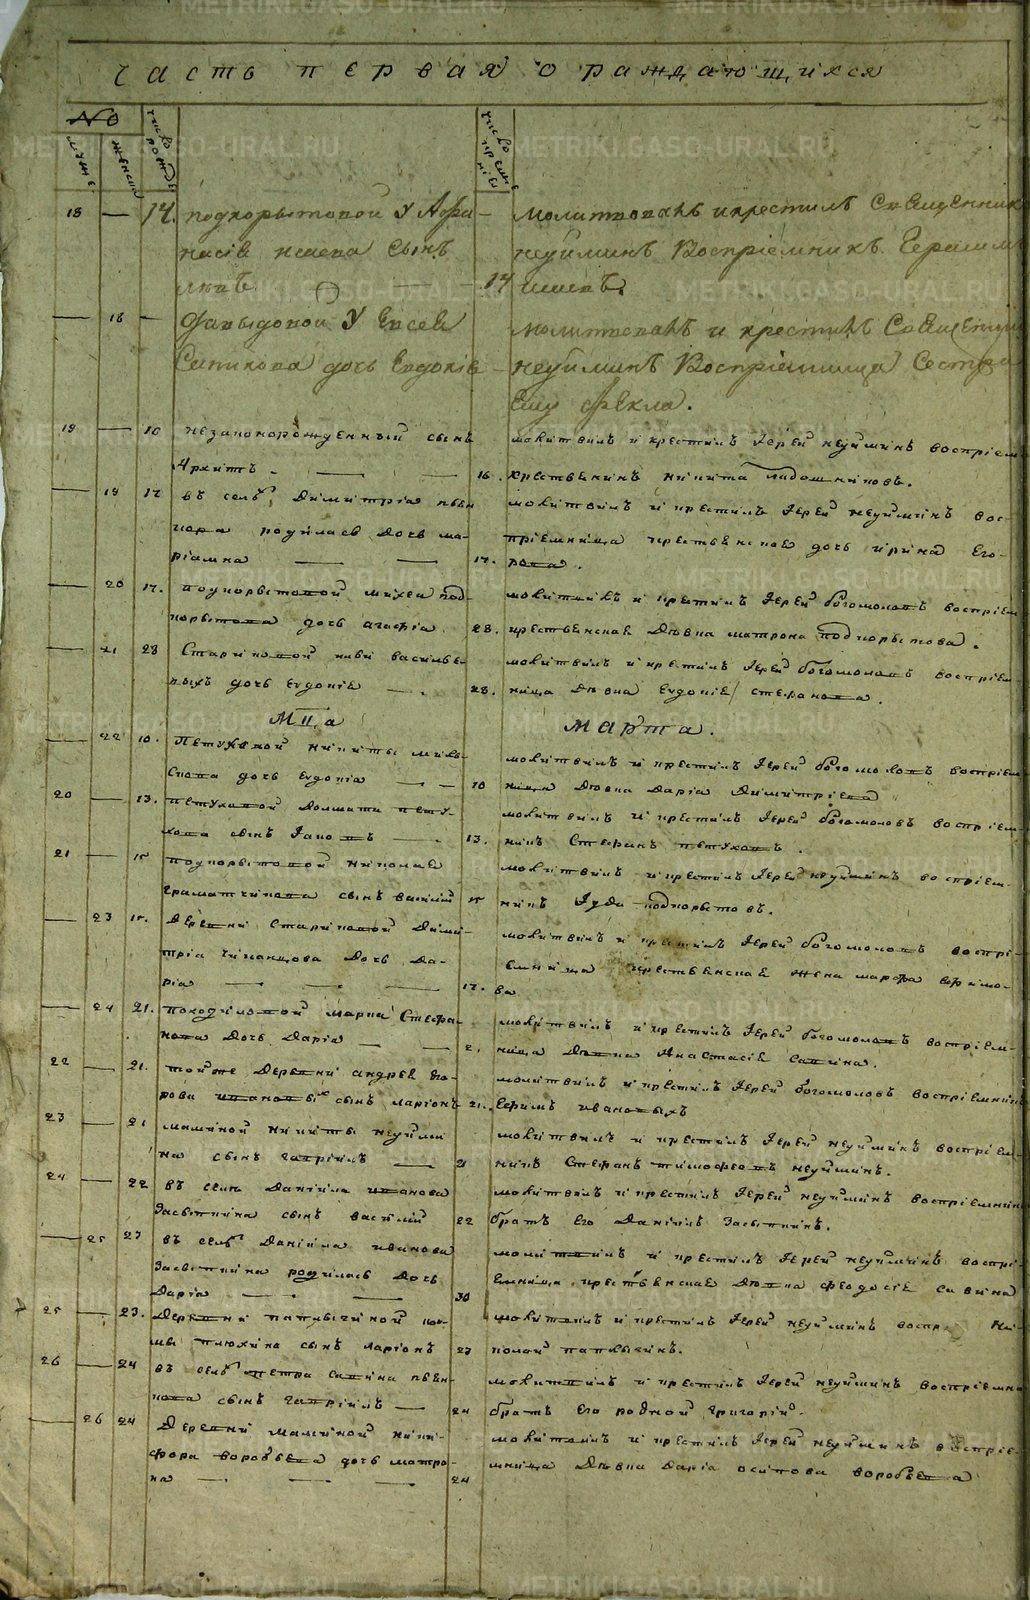 часть первая о раждающихся
№
число рожде
число креще нiя
муже
женска
18 — 14. подкорытовой У Афа-
насiя Исаева сынъ
молитвовалъ и крестилъ Священникъ
неуйминъ Воспрiемникъ Герасимъ
14 Исаевъ.
— 18 — Давыдовой У Евсея
дочь Евдокiя
молитвовалъ и крестилъ Священни
неуйминъ Воспрiемница Сестра
ему Фекла.
19 — 16 незаконорожденный сынъ
Архипъ — —
молитвилъ и крестилъ Iерей неуйминъ воспрiем
16. крестьянинъ никита Ладошниковъ.
— 19 17 въ селѣ Димитрiа
родилась дочь ма-
рiамна — —
молитвилъ и крестилъ Iерей неуйминъ вос-
прiемница крестьянская дочь ирина Его-
17. рова.
— 20 17. подкорытовой михея под-
корытова дочь агафiа
молитвилъ и крестилъ Iерей богомоловъ воспрiем
28. крестьянская Дѣвка матрона подкорытова.
— 21 28 Стариковой василье-
выхъ дочь евдокiя — .
молитвилъ и крестилъ Iерей богомоловъ воспрiем-
28. ница Дѣвка Евдокiя стефанова.
Мца марта.
— 22 10. Петуховой никиты
дочь евдокiа — —
молитвилъ и крестилъ Iерей богомоловъ воспрiем
10 ница Дѣвка Дарiа Димитрiева
20 — 13. петуховой Долмата пету-
хова сынъ Iаковъ —
молитвилъ и крестилъ Iерей богомоловъ воспрiем-
13. никъ Стефанъ петуховъ.
21 — 15 подкорытовой николая
граматчикова сынъ василiй
молитвилъ и крестилъ Iерей неуйминъ воспрiем-
15 никъ Iуда подкорытовъ.
— 23 15. Деревни Стариковой Дими-
трiа дочь да-
рiа — — —
молитвилъ и крестилъ Iерей богомоловъ воспрi-
емница крестьянская жена марфа ефимо-
17. ва
— 24 21. походиловой марки Стефа-
нова дочь Дарiа — —
молитвилъ и крестилъ Iерей богомоловъ воспрiем-
2. ница Дѣвка Анастасiя Савина.
22 — 21. тойже Деревни андрея его-
рова ивановыхъ сынъ ларiонъ
молитвилъ и крестилъ Iерей богомоловъ воспрiемникъ
21. Ефимъ ивановыхъ
23 — 21 маминой никиты неуйми
на сынъ гаврiилъ —
молитвилъ и крестилъ Iерей неуйминъ воспрiем-
21 никъ Стефанъ тимофеевъ неуйминъ.
24 — 22 въ селѣ Данiила иванова
Засыпкина сынъ василiй
молитвилъ и крестилъ Iерей неуйминъ воспрiемникъ
22 братъ его Данiилъ Засыпкинъ.
— 25 27 въ селѣ Данiила иванова
Засыпкина родилась дочь
Дарiа — — —
молитвилъ и крестилъ Iерей неуйминъ воспрi-
емница крестьянская Дѣвка феодосiя савина
30
25 — 23. Деревни
плюхина сынъ ларiонъ
молитвилъ и крестилъ Iерей неуйминъ воспр ни-
27 колай
26 — 24 въ селѣ петра савина
сынъ гаврiилъ —
молитвилъ и крестилъ Iерей неуйминъ воспрiемни
24 братъ его родной григорiй.
— 26 24 Деревни маминой ники-
фора воробьева дочь матро-
на — — —
молитвилъ и крестилъ Iерей неуйминъ воспрiе-
мница Дѣвка Дарiа осипова воробьева
24
METRIKI.GASO-URAL.RU